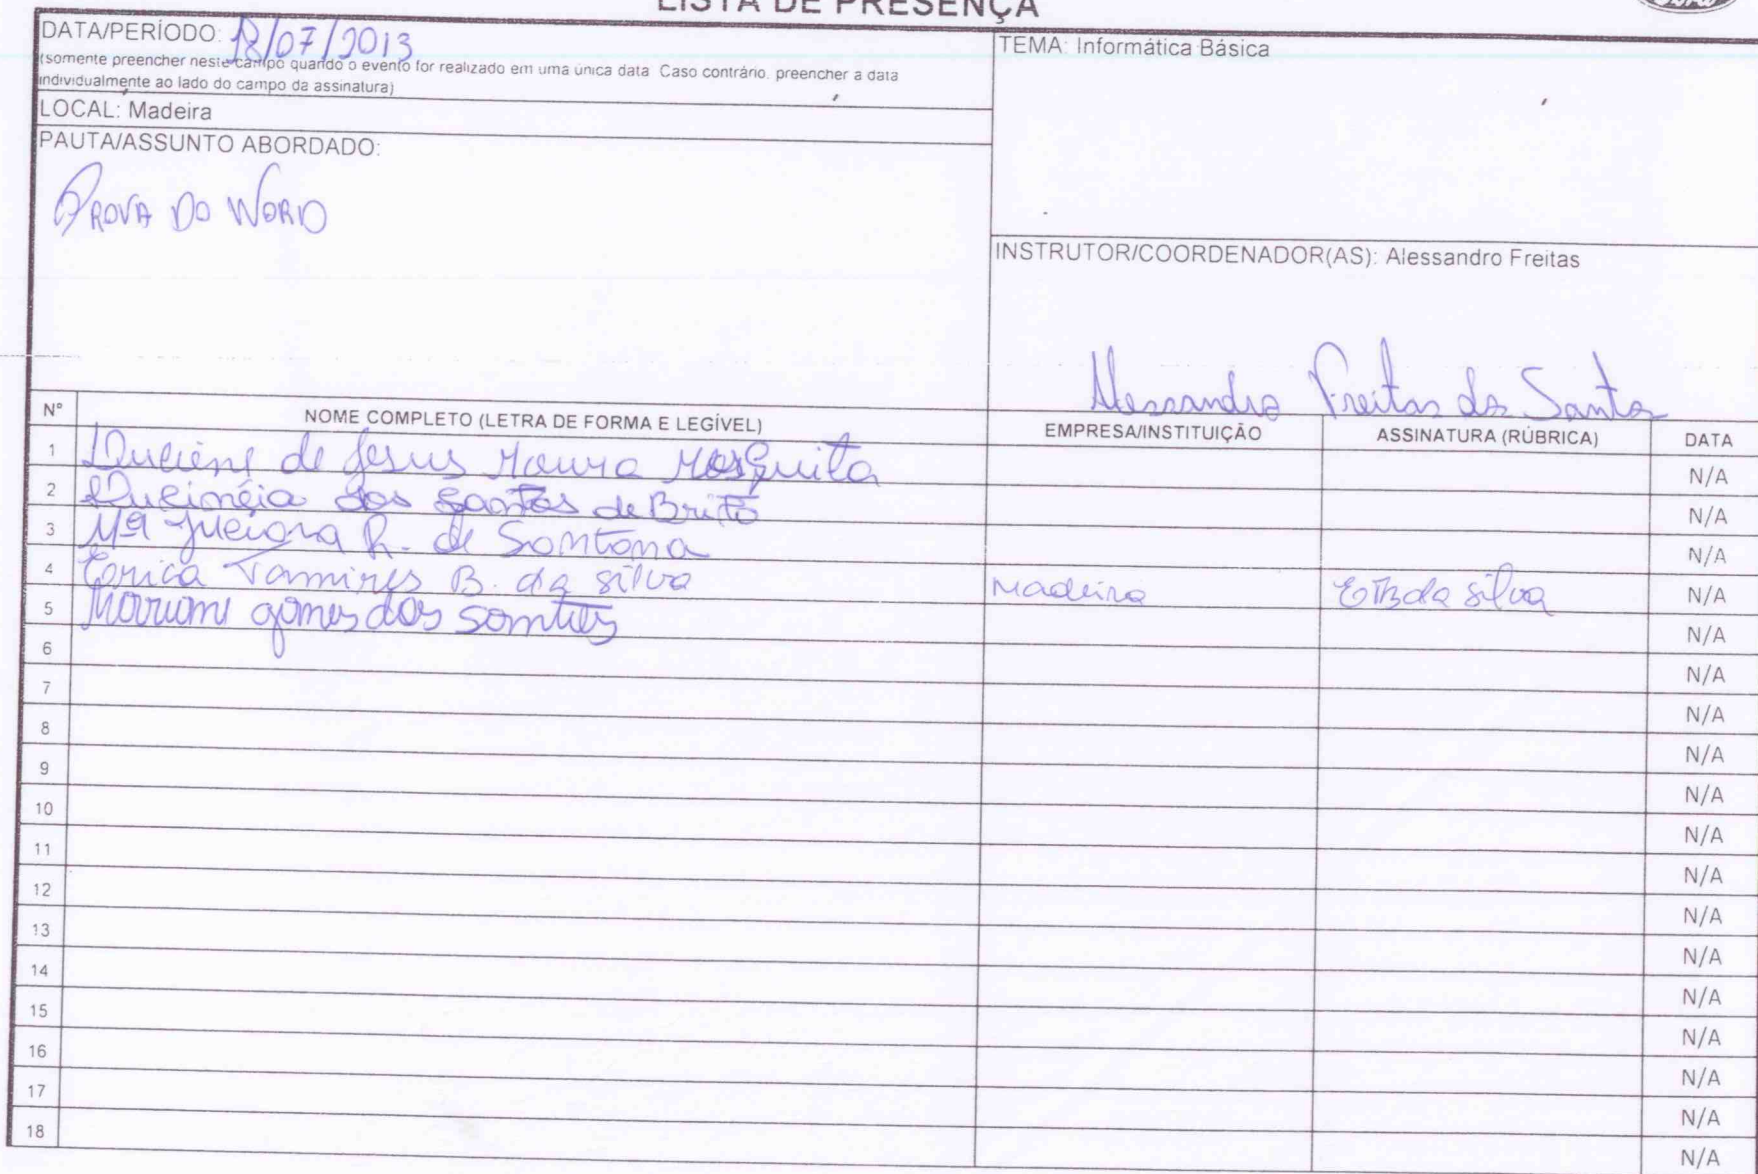 LISTA DE PRESENÇA
DATA/PERÍODO: 18/07/2013
(somente preencher neste campo quando o evento for realizado em uma única data. Caso contrário, preencher a data
individualmente ao lado do campo da assinatura)
TEMA: Informática Básica
LOCAL: Madeira
PAUTA/ASSUNTO ABORDADO:
PROVA DO WORD
INSTRUTOR/COORDENADOR(AS): Alessandro Freitas
Alessandro Freitas dos Santos
N° NOME COMPLETO (LETRA DE FORMA E LEGÍVEL) EMPRESA/INSTITUIÇÃO ASSINATURA (RÚBRICA) DATA
1 Luciene de Jesus Moura Mesquita N/A
2 Lucinéia dos Santos de Brito N/A
3 Mª Juciara R. de Santana N/A
4 Erica Tamires B. da silva Madeira ETB da silva N/A
5 Mariane gomes dos santos N/A
6 N/A
7 N/A
8 N/A
9 N/A
10 N/A
11 N/A
12 N/A
13 N/A
14 N/A
15 N/A
16 N/A
17 N/A
18 N/A